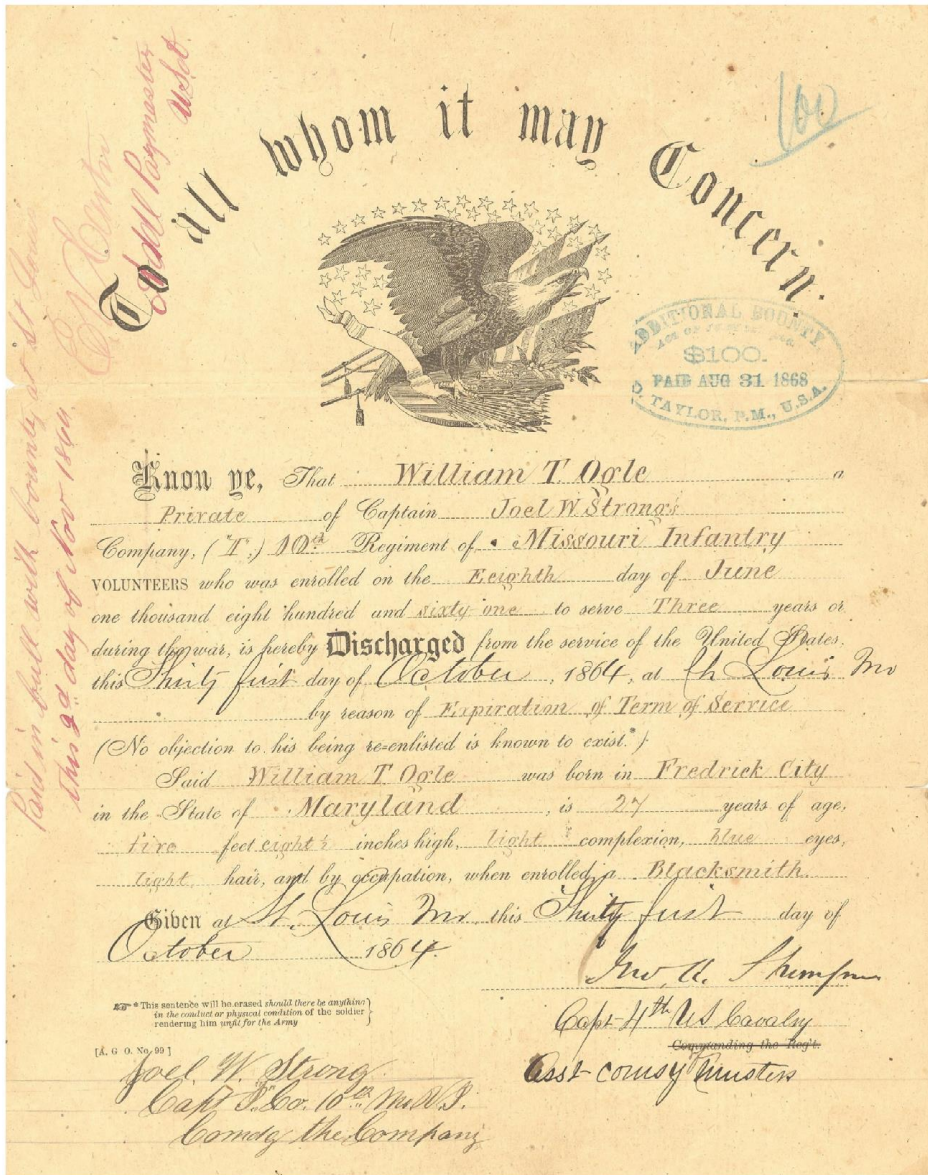 To all whom it may Concern.
100
ADDITIONAL BOUNTY,
$100.
PAID AUG 31 1868
TAYLOR, P.M., U.S.A.
Paid in full with bounty at St Louis
this 2d day of Nov 1864
Addl Paymaster
USA
Know ye, That William T Ogle a
Private of Captain Joel W Strong's
Company, (I.) 10th Regiment of Missouri Infantry
VOLUNTEERS who was enrolled on the Eeighth day of June
one thousand eight hundred and sixty one to serve Three years or
during the war, is hereby Discharged from the service of the United States,
this Thirty first day of October, 1864, at St Louis Mo
by reason of Expiration of Term of Service
(No objection to his being re-enlisted is known to exist.*)
Said William T Ogle was born in Fredrick City
in the State of Maryland, is 27 years of age,
five feet eight inches high, light complexion, blue eyes,
light hair, and by occupation, when enrolled, a Blacksmith.
Given at St. Louis Mo this Thirty first day of
October 1864.
Capt 4th US Cavalry
Commanding the Reg't.
Asst Musters
* This sentence will be erased should there be anything
in the conduct or physical condition of the soldier
rendering him unfit for the Army
[A. G. O. No. 99]
Joel W. Strong
Capt "I" Co. 10th Mo V. I.
Comdg the Company